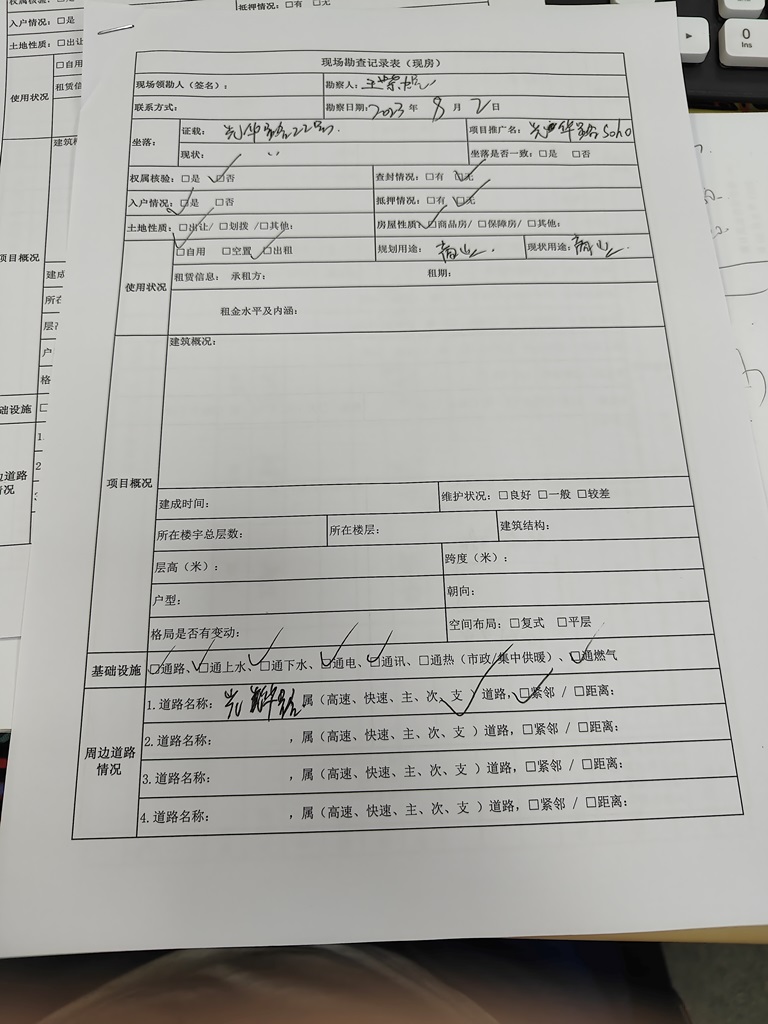 权属核验: □是
抵押情况: □有 □无
入户情况: □是
土地性质: □出让
□自用
租赁信
使用状况
建筑概
项目概况
建成
所在
层
户
格
础设施
边道路
况
1.
2
0
Ins
现场勘查记录表（现房）
现场领勘人（签名）: 勘察人:
联系方式: 勘察日期: 2023 年 8 月 2 日
坐落: 证载: 光华路22号. 项目推广名: 光华路Soho
现状: 〃 坐落是否一致: □是 □否
权属核验: □是 ☑否 查封情况: □有 ☑无
入户情况: ☑是 □否 抵押情况: □有 ☑无
土地性质: ☑出让/ □划拨 /□其他: 房屋性质: ☑商品房/ □保障房/ □其他:
使用状况 □自用 □空置 ☑出租 规划用途: 商业. 现状用途: 商业.
租赁信息: 承租方: 租期:
租金水平及内涵:
项目概况
建筑概况:
建成时间: 维护状况: □良好 □一般 □较差
所在楼宇总层数: 所在楼层: 建筑结构:
层高（米）: 跨度（米）:
户型: 朝向:
格局是否有变动: 空间布局: □复式 □平层
基础设施 ☑通路、☑通上水、☑通下水、☑通电、☑通讯、□通热（市政/集中供暖）、☑通燃气
周边道路情况
1.道路名称: 光华路 属（高速、快速、主、次、支✓）道路, ☑紧邻 / □距离:
2.道路名称: ,属（高速、快速、主、次、支 ）道路, □紧邻 / □距离:
3.道路名称: ,属（高速、快速、主、次、支 ）道路, □紧邻 / □距离:
4.道路名称: ,属（高速、快速、主、次、支 ）道路, □紧邻 / □距离: